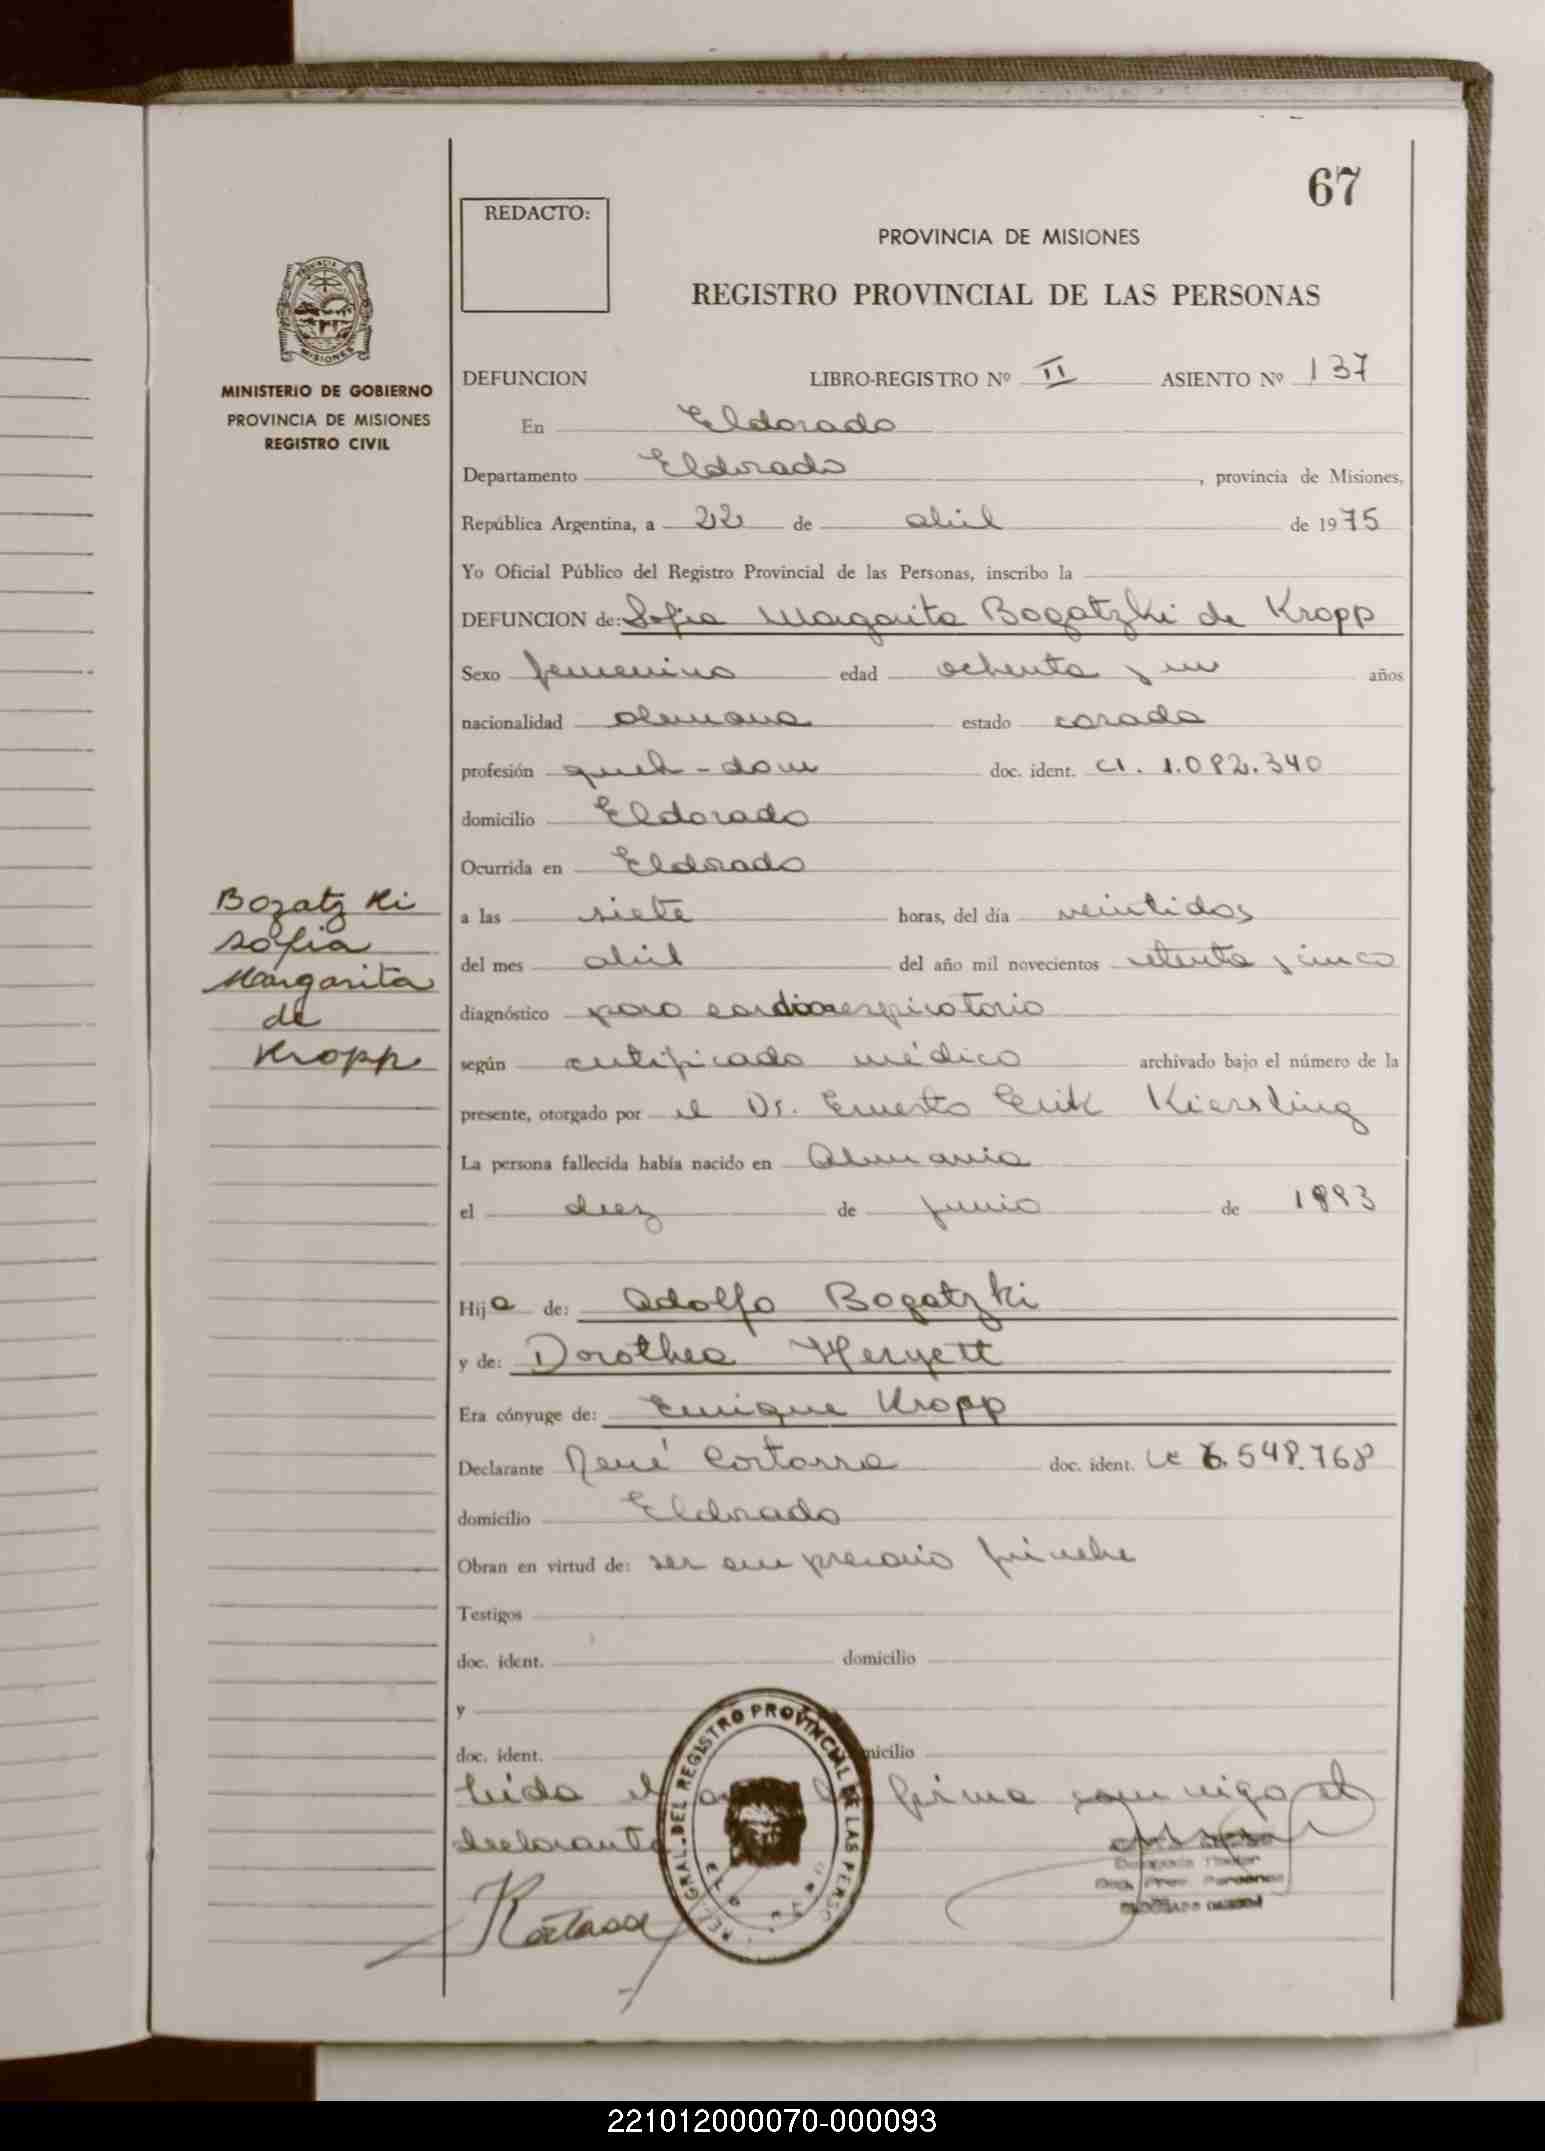 67
REDACTO:
PROVINCIA DE MISIONES
REGISTRO PROVINCIAL DE LAS PERSONAS
PROVINCIA DE MISIONES
MINISTERIO DE GOBIERNO
PROVINCIA DE MISIONES
REGISTRO CIVIL
DEFUNCION LIBRO-REGISTRO Nº II ASIENTO Nº 137
En Eldorado
Departamento Eldorado, provincia de Misiones,
República Argentina, a 22 de abril de 1975
Yo Oficial Público del Registro Provincial de las Personas, inscribo la
DEFUNCION de: Sofia Margarita Bogatzki de Kropp
Sexo femenino edad ochenta y un años
nacionalidad alemana estado casada
profesión queh-dom doc. ident. CI. 1.092.340
domicilio Eldorado
Ocurrida en Eldorado
a las siete horas, del día veintidos
del mes abril del año mil novecientos setenta y cinco
diagnóstico paro cardiorespiratorio
según certificado médico archivado bajo el número de la
presente, otorgado por el Dr. Ernesto Erik Kiersling
La persona fallecida había nacido en Alemania
el diez de junio de 1893
Hija de: Adolfo Bogatzki
y de: Dorothea
Era cónyuge de: Enrique Kropp
Declarante René Cortassa doc. ident. LE 6.548.768
domicilio Eldorado
Obran en virtud de: ser empresario fúnebre
Testigos
doc. ident. domicilio
y
doc. ident. domicilio
Leido el la firma conmigo el
declarante
Bogatzki
Sofia
Margarita
de
Kropp
DEL REGISTRO PROVINCIAL DE LAS PERSO
221012000070-000093